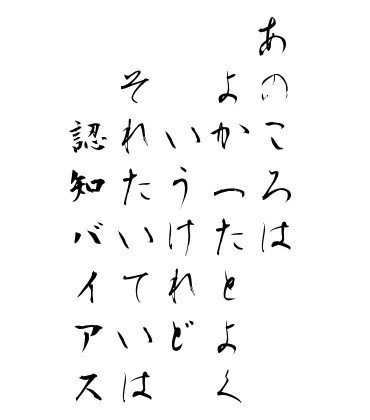 あのころは
よかったとよく
いうけれど
それたいていは
認知バイアス